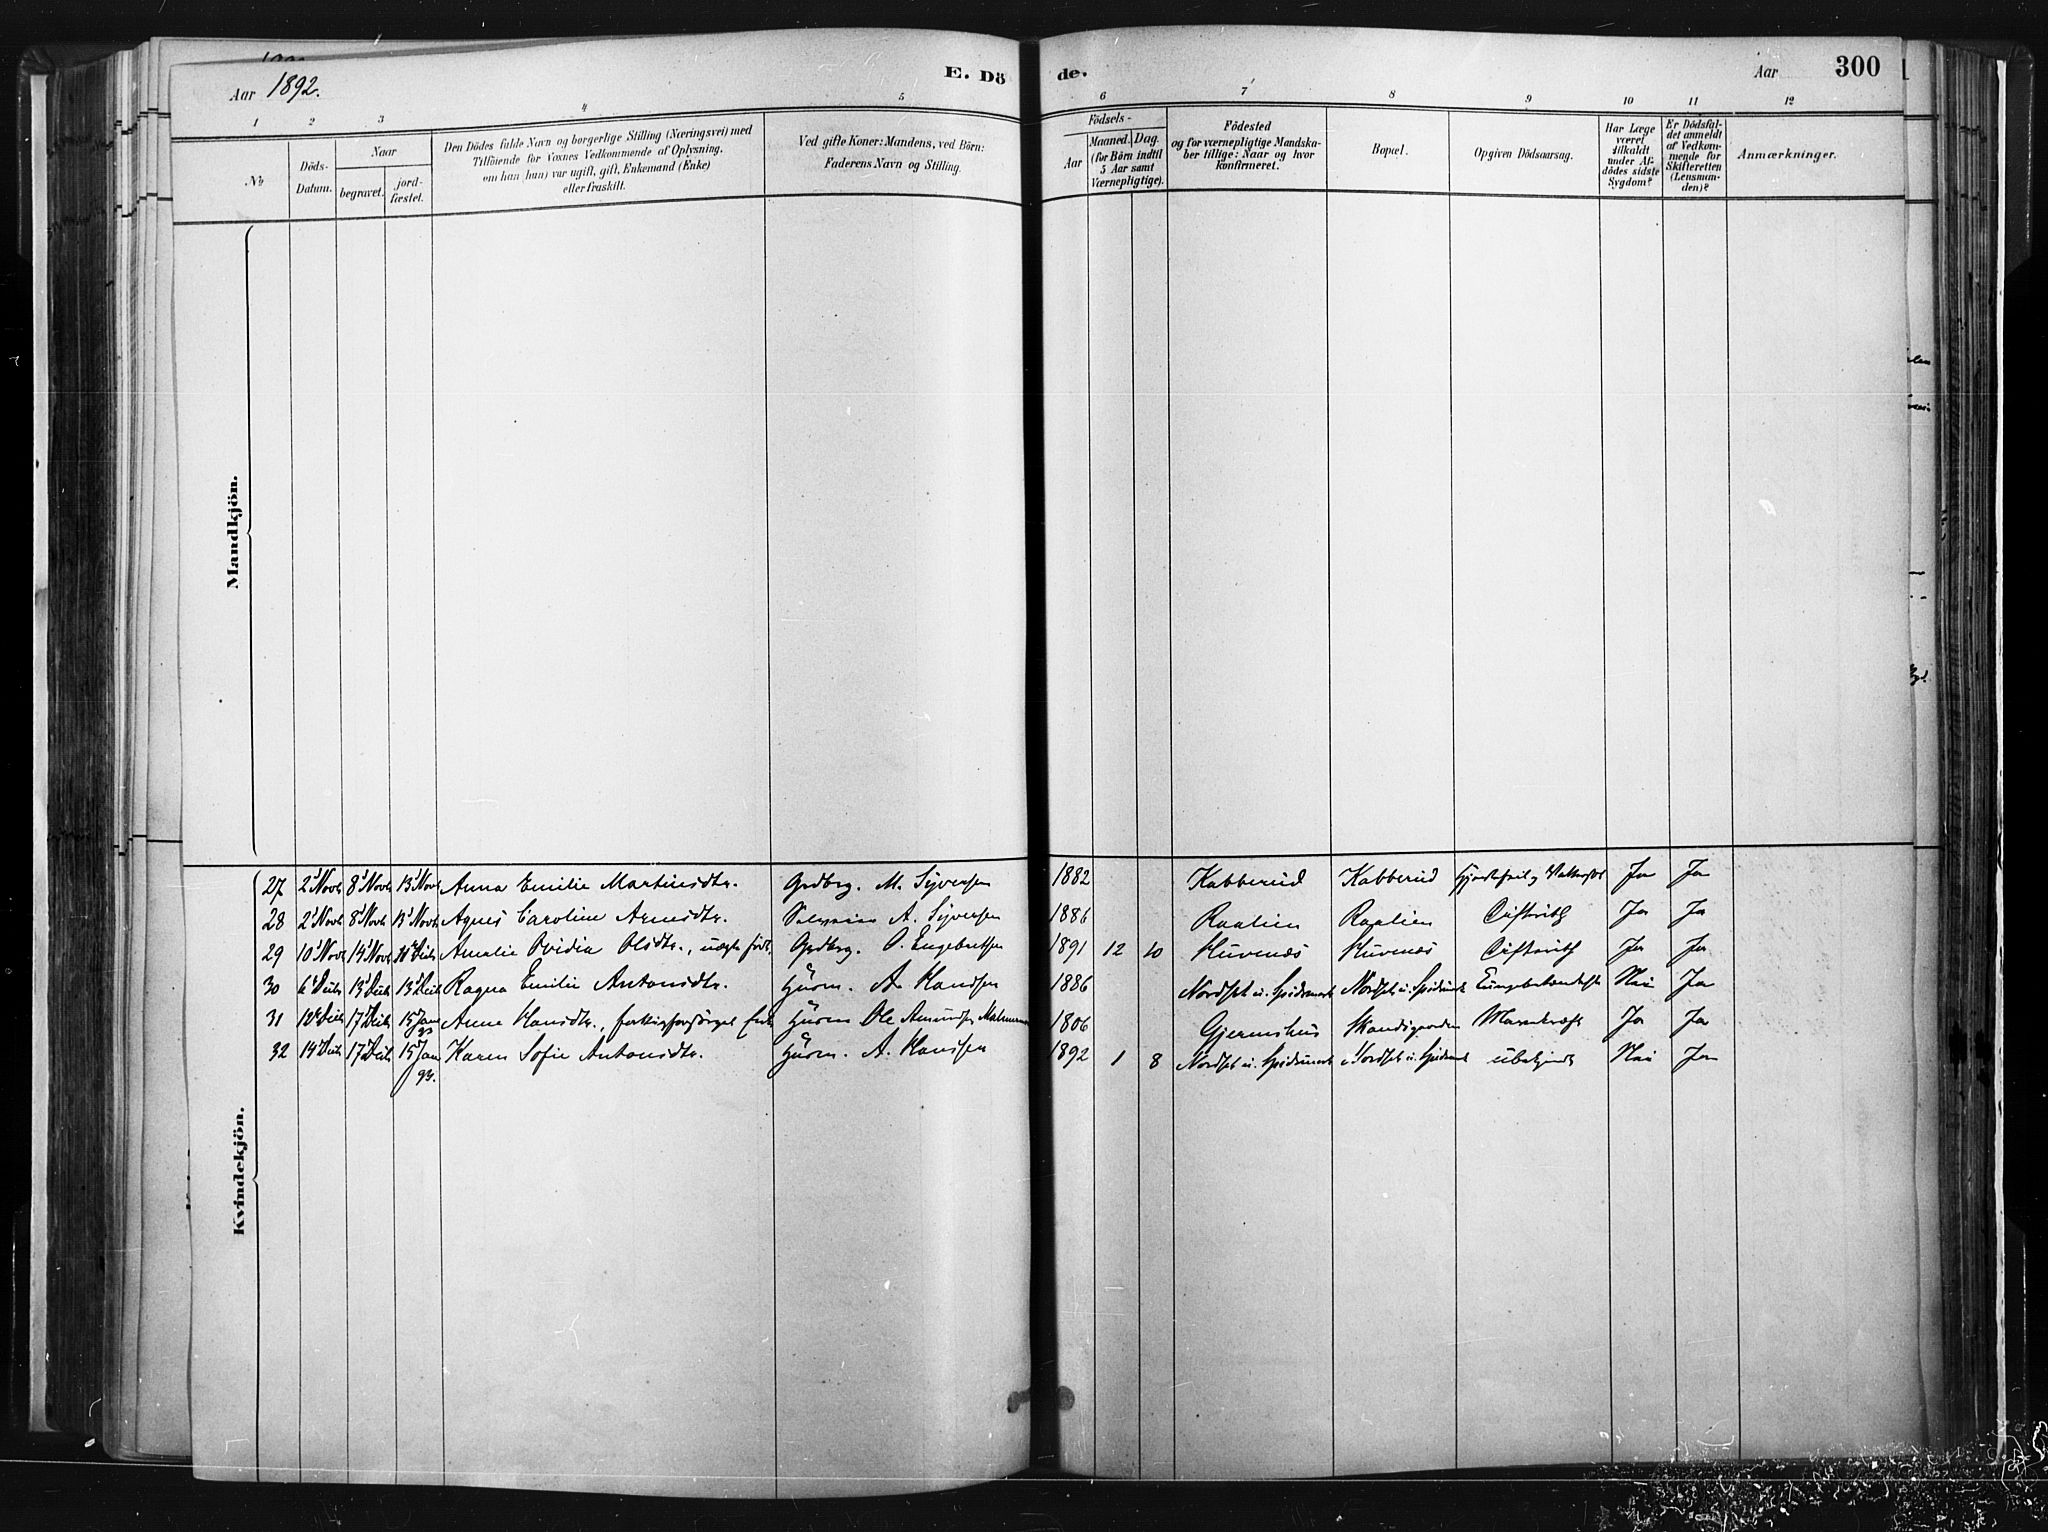 Aar 1892.
E. Dö
de.
Aar
300
1 2 3 4 5 6 7 8 9 10 11 12
No
Döds-
Datum.
Naar
begravet.
jord-
fæstet.
Den Dödes fulde Navn og borgerlige Stilling (Næringsvei) med
Tilföiende for Voxnes Vedkommende af Oplysning,
om han (hun) var ugift, gift, Enkemand (Enke)
eller fraskilt.
Ved gifte Koner: Mandens, ved Börn:
Faderens Navn og Stilling.
Födsels-
Aar
Maaned. Dag.
(for Börn indtil
5 Aar samt
Værnepligtige).
Födested
og for værnepligtige Mandska-
ber tillige: Naar og hvor
konfirmeret.
Bopæl.
Opgiven Dödsaarsag.
Har Læge
været
tilkaldt
under Af-
dödes sidste
Sygdom?
Er Dödsfal-
det anmeldt
af Vedkom-
mende for
Skifteretten
(Lensman-
den)?
Anmærkninger.
Mandkjön.
Kvindekjön.
27 2 Novb 8 Novb 13 Novb Anna Emilie Martinsdtr. Grdbrg. M. Syversen 1882 Kabberud Kabberud Ja Ja
28 2 Novb 8 Novb 13 Novb Agnes Caroline Arnesdtr. A. Syversen 1886 Raalien Raalien Difterith Ja Ja
29 10 Novb 14 Novb Amalie Ovidia Olsdtr., uægte födt, Grdbrg. O. Engebretsen 1891 12 10 Huvenæs Huvenæs Difterith Ja Ja
30 6 Decb 13 Decb 13 Decb Ragna Emilie Antonsdtr. Husm. A. Hansen 1886 Nordset u. Spidsmark Nordset u. Spidsmark Nei Ja
31 12 Decb 17 Decb 15 Jan 93 Anne Hansdtr., Husm Ole Amundsen 1806 Gjermshus Skandsgaarden Ja Ja
32 14 Decb 17 Decb 15 Jan 93. Karen Sofie Antonsdtr. Husm. A. Hanssen 1892 1 8 Nordset u. Spidsmark Nordset u. Spidsmark ubekjendt Nei Ja